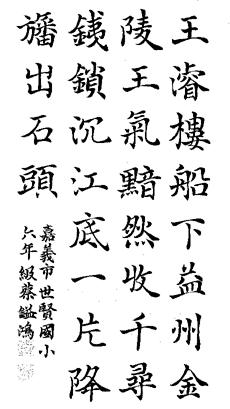 王濬樓船下益州金
陵王氣黯然收千尋
銕鎖沉江底一片降
旛出石頭
嘉義市世賢國小
六年級蔡鎰鴻